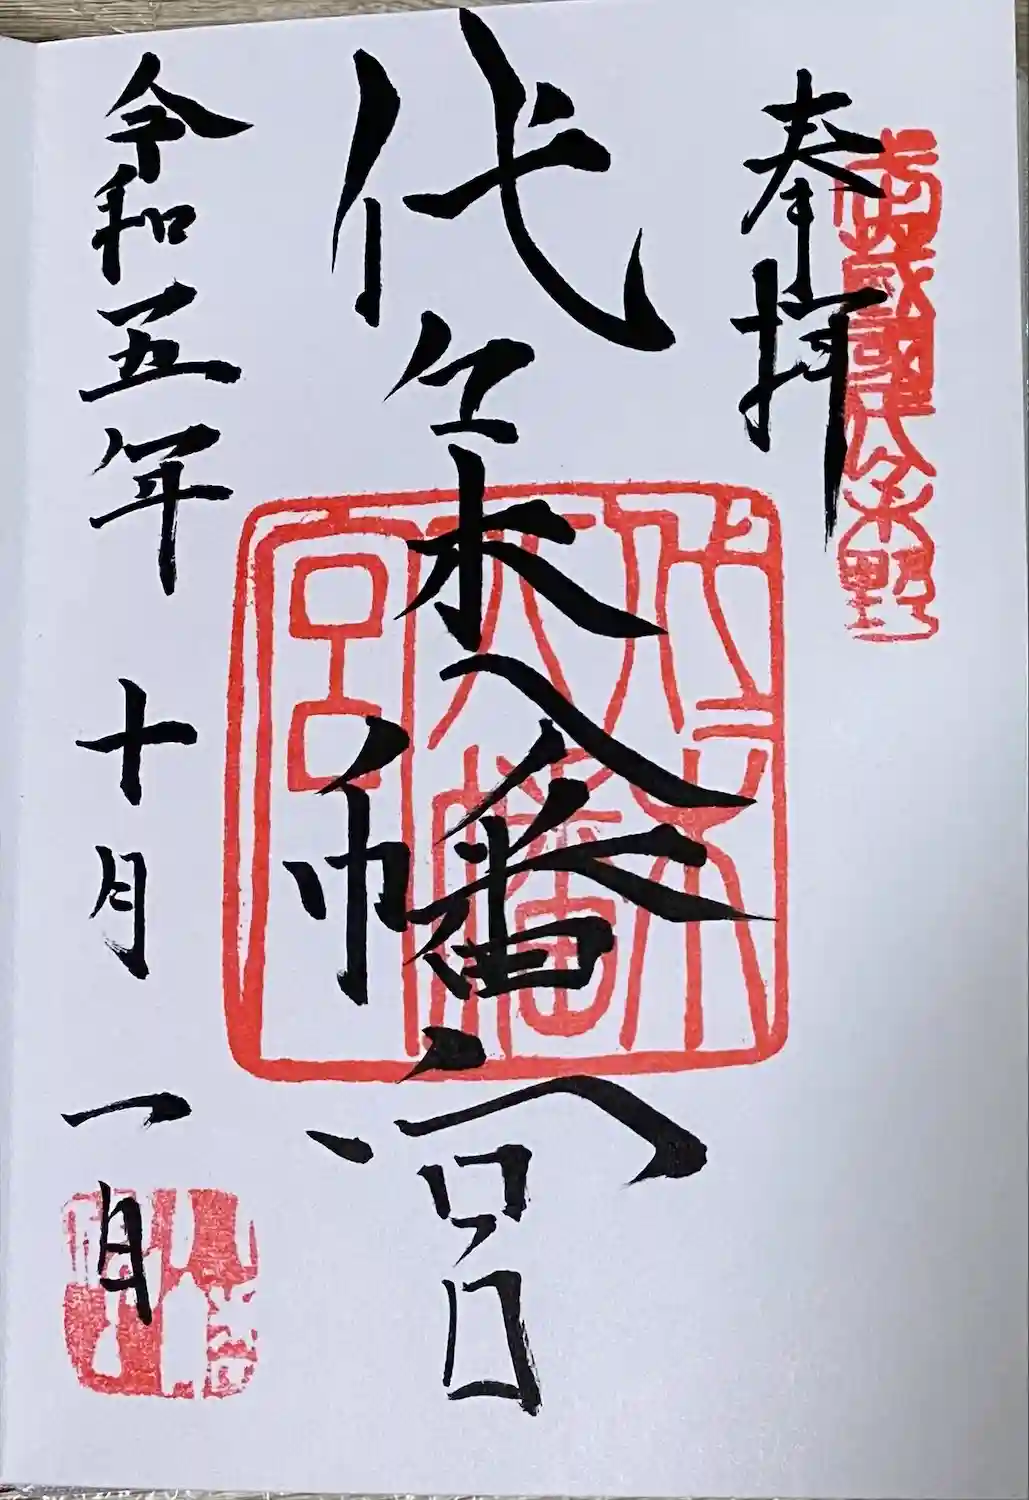 武蔵國代々木野
奉拝
代々木八幡宮
代々木八幡宮
令和五年 十月 一日